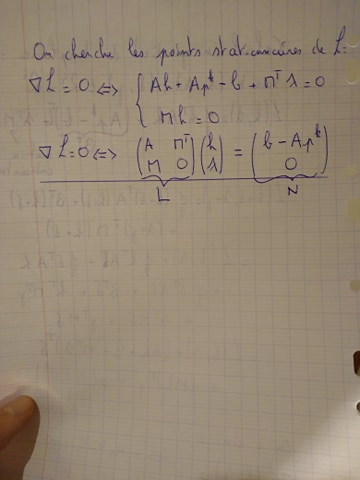 On cherche les points stationnaires de L:
∇L = 0 ⇔ { Ah + Ap^k - b + M^T λ = 0
M h = 0
∇L = 0 ⇔ (A M^T; M 0) (h; λ) = (b - Ap^k; 0)
L N